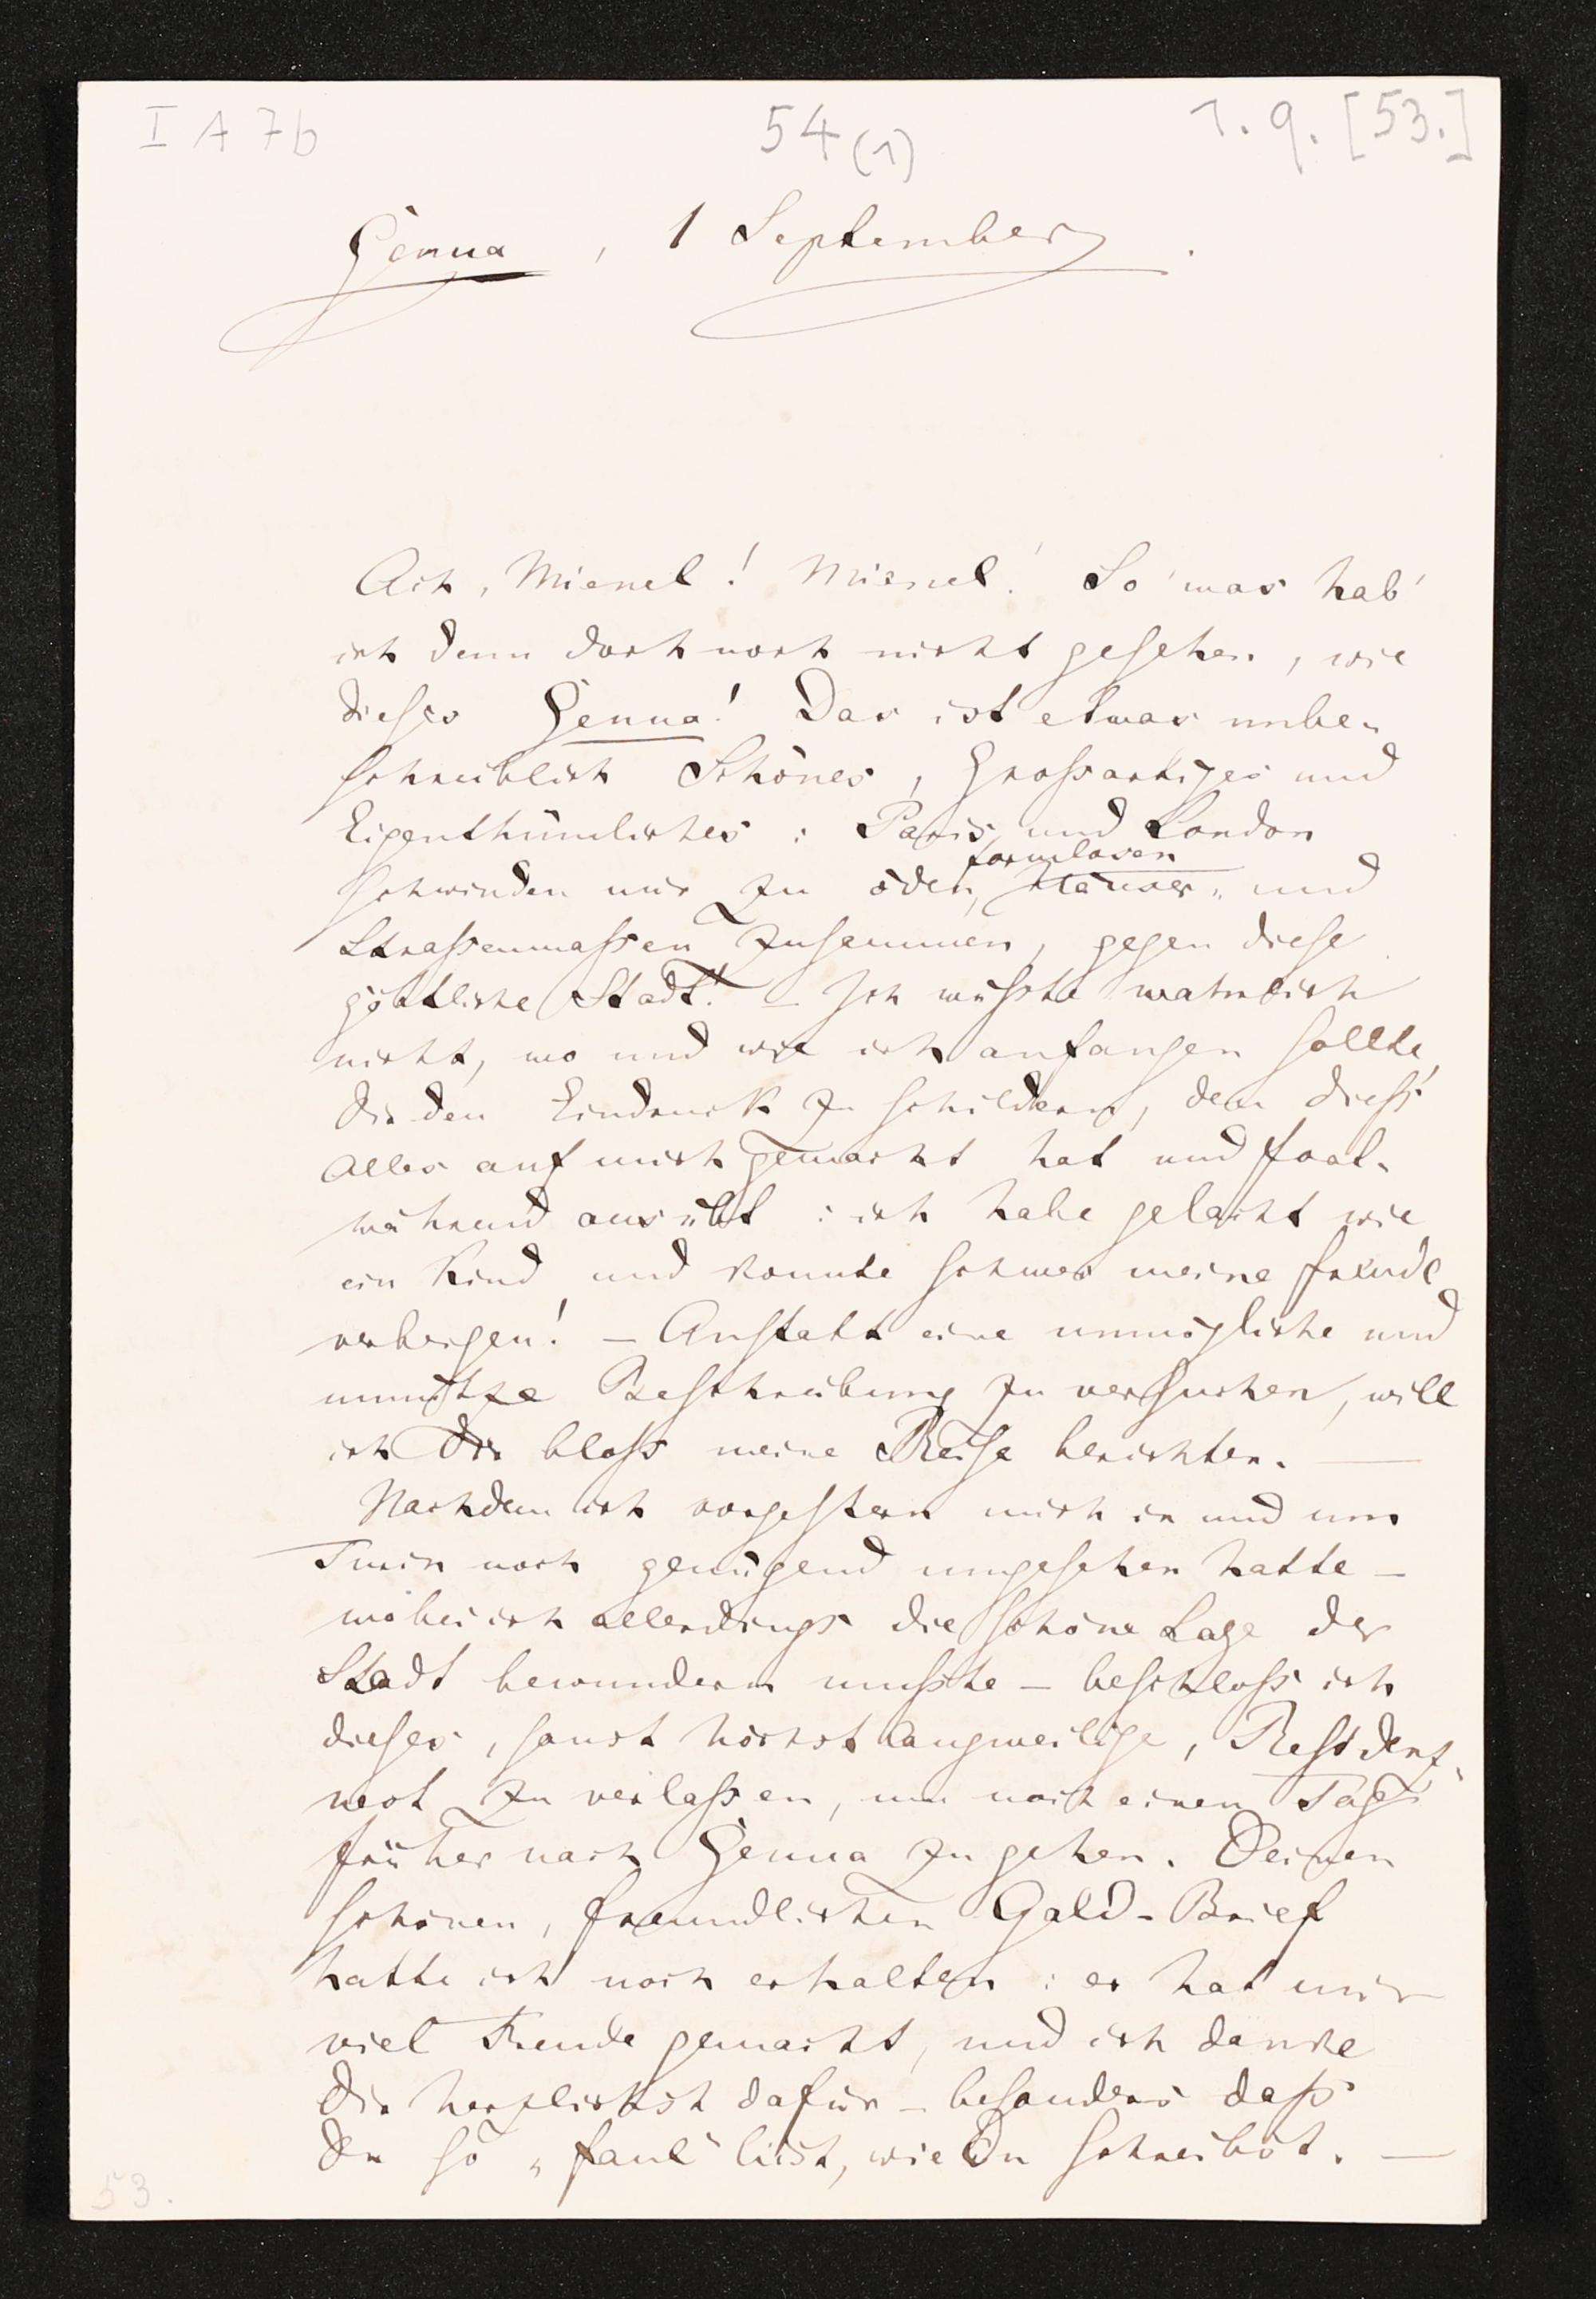 I A 7b
54 (1)
1. 9. [53.]
Genua, 1 September.
Ach, Mienel! Mienel! So 'was hab'
ich denn doch noch nicht gesehen, wie
dieses Genua! Das ist etwas unbe-
schreiblich Schönes, Großartiges und
Eigenthümliches: Paris und London
formlosen
schwinden mir zu öden, Häuser- und
Straßenmaßen zusammen, gegen diese
göttliche Stadt! – Ich wüßte wahrlich
nicht, wo und wie ich anfangen sollte,
Dir den Eindruck zu schildern, den dieß
Alles auf mich gemacht hat und fort-
während ausübt: ich habe gelacht wie
ein Kind und konnte schwer meine Freude
verbergen! – Anstatt eine unmögliche und
unnütze Beschreibung zu versuchen, will
ich Dir bloß meine Reise berichten. —
Nachdem ich vorgestern mich in und um
Turin noch genügend umgesehen hatte –
wobei ich allerdings die schöne Lage der
Stadt bewundern mußte – beschloß ich
dieses, sonst höchst langweilige, Residenz-
nest zu verlaßen, um noch einen Tag
früher nach Genua zu gehen. Deinen
schönen, freundlichen Gold-Brief
hatte ich noch erhalten: er hat mir
viel Freude gemacht, und ich danke
Dir herzlichst dafür – besonders daß
Du so „faul" bist, wie Du schreibst. —
53.